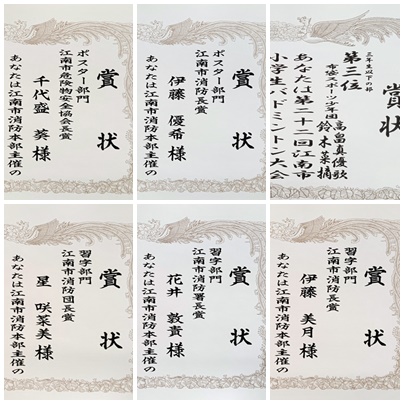 賞状
ポスター部門
江南市危険物安全協会長賞
千代盛 葵 様
あなたは江南市消防本部主催の
賞状
ポスター部門
江南市消防長賞
伊藤 優希 様
あなたは江南市消防本部主催の
賞状
三年生以下の部
第三位
布袋スポーツ少年団
高畠真優歌
鈴木菜摘
あなたは第二十二回江南市
小学生バドミントン大会
賞状
習字部門
江南市消防団長賞
星 咲菜美 様
あなたは江南市消防本部主催の
賞状
習字部門
江南市消防署長賞
花井 敦貴 様
あなたは江南市消防本部主催の
賞状
習字部門
江南市消防長賞
伊藤 美月 様
あなたは江南市消防本部主催の